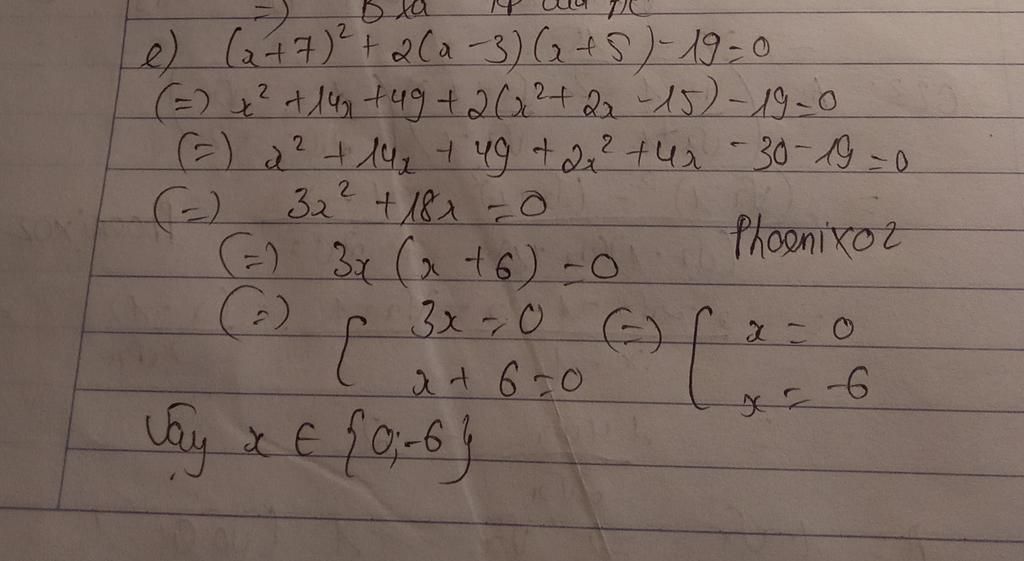 =)
e) (x+7)² + 2(x-3)(x+5) - 19=0
(=) x² + 14x + 49 + 2(x² + 2x - 15) - 19=0
(=) x² + 14x + 49 + 2x² + 4x - 30 - 19 = 0
(=) 3x² + 18x = 0
Phoenix02
(=) 3x (x + 6) = 0
(=) [ 3x = 0 (=) [ x = 0
x + 6 = 0 x = -6
Vậy x ∈ {0;-6}